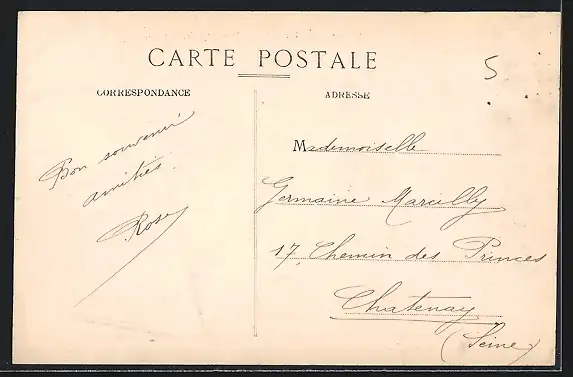 CARTE POSTALE
5
CORRESPONDANCE
ADRESSE
Bon souvenir
amitiés.
Rose
Mademoiselle
Germaine Marcilly
17, Chemin des Princes
Chatenay
(Seine)